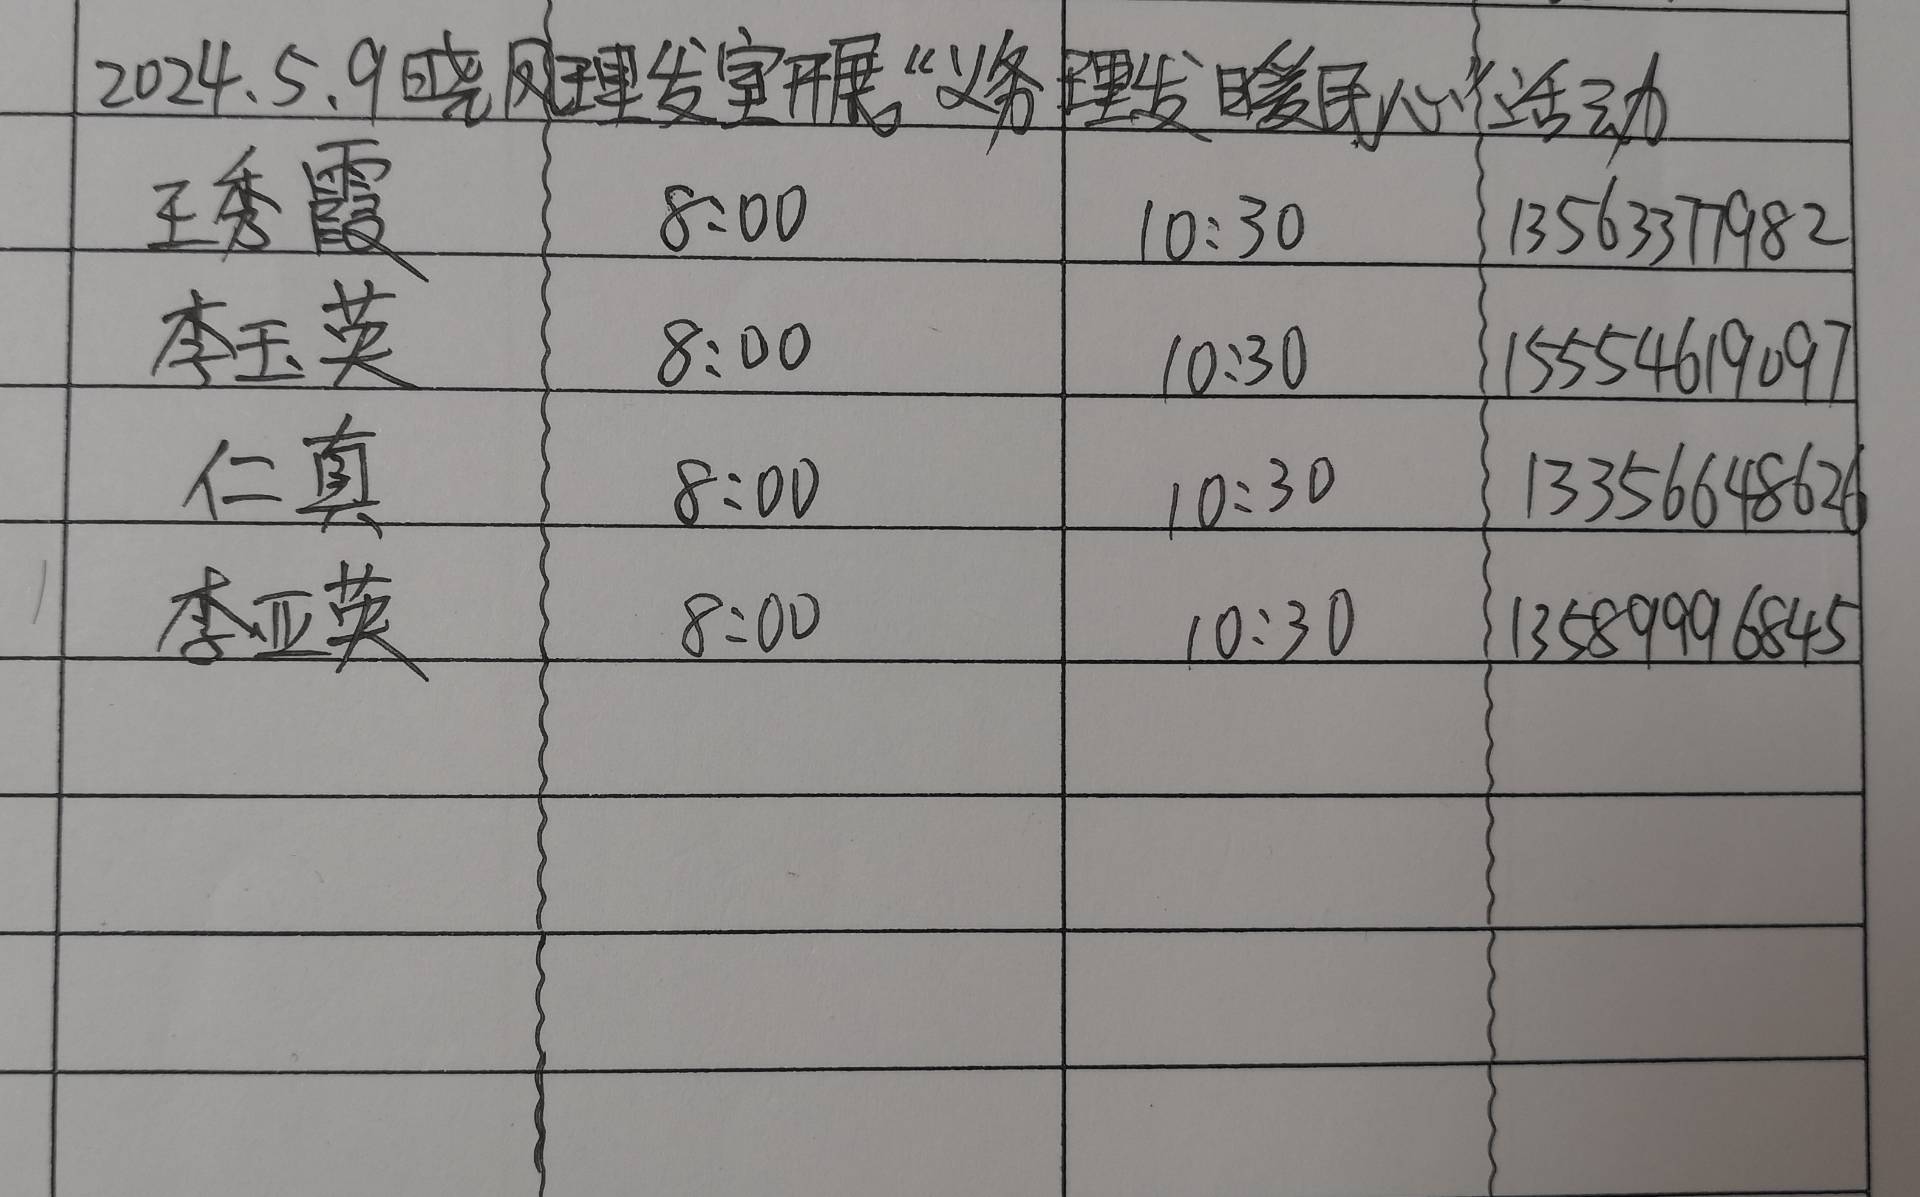 2024.5.9晓风理发室开展“义务理发暖民心”活动
王秀霞 8:00 10:30 13563377982
李玉英 8:00 10:30 15554619097
仁真 8:00 10:30 13356648626
李亚英 8:00 10:30 13589996845